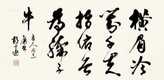 横眉冷
對千夫
指俯首甘
為孺子
牛